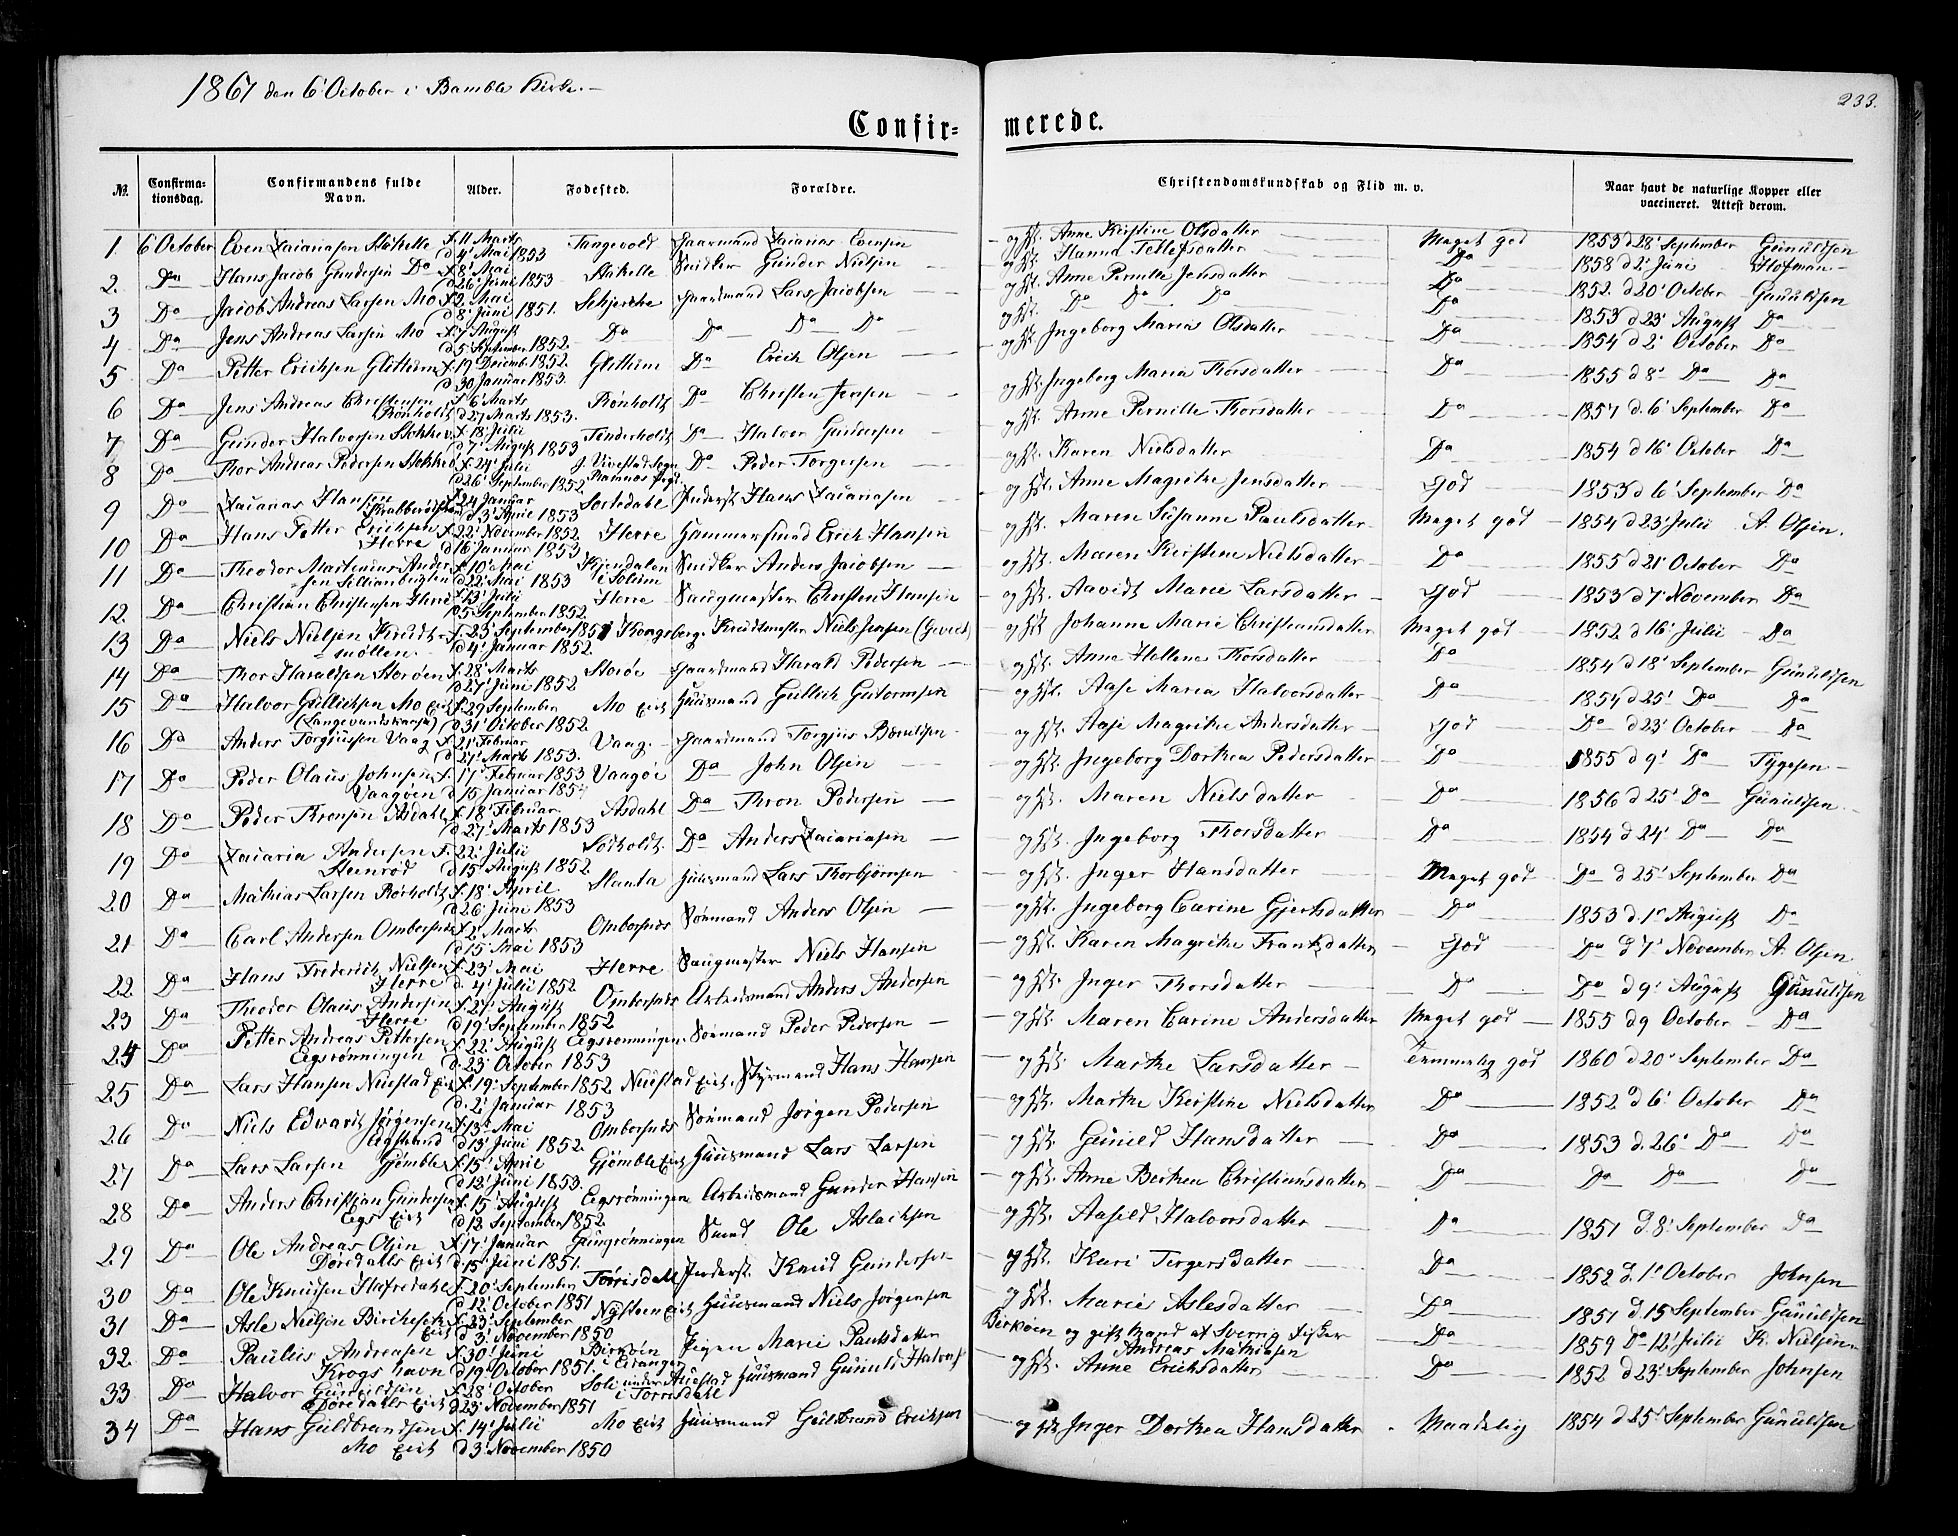 1867 den 6' October i Bamble Kirke.
233.
Confir= merede.
No. Confirma-tionsdag. Confirmandens fulde Navn. Alder. Fodested. Forældre. Christendomskundskab og Flid m. v. Naar havt de naturlige Kopper eller vaccineret. Attest derom.
1. 6 October Even Zaiariasen Stokelle f. 11 Marts d 4' Mai 1853 Tangevold Gaarmand Zaiarias Evensen og Hst. Anne Kirstine Olsdatter Meget god 1853 d 28' September Gunuldsen
2. Do Hans Jacob Gundersen Do f. 8' Mai d 26' Juni 1853 Stokelle Snidker Gunder Nielsen og Hst. Hanna Tollefsdatter Do 1858 d 2' Juni Hofman
3 Do Jacob Andreas Larsen Mo f. 2. Mai d 8' Juni 1851. Schjerke Gaardmand Lars Jacobsen og Hst. Anne Pernille Jensdatter Do 1852. d 20' October Gunuldsen
4 Do Jens Andreas Larsen Mo f. 7 August d 5' September 1852. Do Do Do Do og Hst. Do Do Do Do 1853 d 23' August Do
5 Do Petter Erichsen Glittum f. 19 December 1852. d 30. Januar 1853. Glittum Do Erich Olsen og Hst. Ingeborg Marias Olsdatter Do 1854 d 2' October Do
6 Do Jens Andreas Christensen Rønholdt f. 6' Marts d 27 Marts 1853. Rønholdt Do Christen Jensen og Hst. Ingeborg Maria Thorsdatter Do 1855 d 8' Do Do
7 Do Gunder Halvorsen Stokke f. 18' Julii d 7' August 1853 Tinderholdt Do Halvor Gundersen og Hst. Anne Pernille Thorsdatter Do 1857 d. 6' September Do
8 Do Thor Andreas Pedersen Stokke f. 24' Julii d 26' September 1852 i Vivestad Sogn Ramnæs Prgd Do Peder Torgersen og Hst. Karen Nielsdatter Do 1854 d 16' October Do
9 Do Zaiarias Hansen f. 24 Januar d 3' April 1853 Sortedahl Inderst Hans Zaiariasen og Hst. Anne Magrethe Jensdatter God 1853 d 6' September Do
10 Do Hans Petter Erichsen Herre f. 22' November 1852 d 16' Januar 1853 Herre Hammersmed Erich Hansen og Hst. Maren Susanne Paulsdatter Meget god 1854 d 23' Julii A. Olsen.
11 Do Theodor Martinius Andersen f. 10' Mai d 22' Mai 1853 i Solum Snidker Anders Jacobsen og Hst. Maren Kirstine Nielsdatter Do 1855 d 21' October Do
12. Do Christian Christensen Herre f. 13' Julii d 5' September 1852 Herre Saugmester Christen Hansen og Hst. Aavidt Marie Larsdatter God 1853 d 7' November Do
13 Do Niels Nielsen Krudtmøllen f. 23' September 1851 d 4' Januar 1852. Kongsberg. Krudtmester Niels Jensen og Hst. Johanne Marie Christiansdatter Meget god 1852 d 16' Julii Do
14 Do Thor Haraldsen Storøen f. 28' Marts d 27' Juni 1852 Storøe Gaardmand Harald Pedersen og Hst. Anne Hellene Thorsdatter Do 1854 d 18' September Gunuldsen
15 Do Halvor Gullichsen Mo Eiet (Langevandskaasa) f. 29 September d 31' October 1852. Mo Eiet Huusmand Gullich Guttormsen og Hst. Aase Maria Halvorsdatter Do 1854 d 25' Do Do
16 Do Anders Torgiussen Vaag f. 21' Februar d 27' Marts 1853. Vaag. Gaardmand Torgjus Bæruldsen og Hst. Aase Magrethe Andersdatter God Do d 23' October Do
17 Do Peder Olaus Johnsen Vaagøen f. 17' Februar 1853 d 15 Januar 1854 Vaagøe Do John Olsen og Hst. Ingeborg Dorthea Pedersdatter Do 1855 d 9' Do Tygesen
18 Do Peder Thronsen Asdahl f. 18' Februar d 27' Marts 1853 Asdahl Do Thron Pedersen og Hst. Maren Nielsdatter Do 1856 d 25' Do Gunuldsen
19 Do Zaiaria Andersen Steenrød f. 22' Julii d 15' August 1852 Do Anders Zaiariasen og Hst. Ingeborg Thorsdatter Do 1854 d 24' Do Do
20 Do Mathias Larsen Rørholdt f. 18' April d 26' Juni 1853 Huusmand Lars Thorbjørnsen og Hst. Inger Hansdatter Meget god Do d 25' September Do
21 Do Carl Andersen Ombordsnæs f. 2' Marts d 15' Mai 1853 Ombordsnæs Sømand Anders Olsen og Hst. Ingeborg Carine Gjertsdatter Do 1853 d. 1' August Do
22 Do Hans Frederich Nielsen Herre f. 23' Mai d. 4' Julii 1852 Herre Saugmester Niels Hansen og Hst. Karen Magrethe Frantsdatter God Do d 7' November A. Olsen
23 Do Theodor Olaus Andersen Herre f. 27' August d 19' September 1852 Ombordsnæs Arbeidsmand Anders Andersen og Hst. Inger Thorsdatter Do Do d 9' August Gunuldsen
24 Do Petter Andreas Pettersen Eegsrønningen f. 22' August d. 23' October 1853 Eegsrønningen. Sømand Peder Pedersen og Hst. Maren Carine Andersdatter Meget god 1855 d 9 October Do
25 Do Lars Hansen Nuestad Eiet f. 19' September 1852 d. 2' Januar 1853 Nuestad Eiet. Styrmand Hans Hansen og Hst. Marthe Larsdatter Temmelig god 1860 d 20' September Do
26 Do Niels Edvard Jørgensen Eegstrand f. 13' Mai d 13' Juni 1852. Ombordsnæs Sømand Jørgen Pedersen og Hst. Marthe Kirstine Nielsdatter Do 1852 d 6' October Do
27 Do Lars Larsen Gjømble f. 15' April d 12' Juni 1853. Gjømble Eiet Huusmand Lars Larsen og Hst. Gunild Hansdatter Do 1853 d. 26' Do Do
28 Do Anders Christian Gundersen Eegs Eiet f. 15' August d 12 September 1852 Eegsrønningen Arbeidsmand Gunder Hansen og Hst. Anne Berthea Christiansdatter Do Do Do Do
29 Do Ole Andreas Olsen Døredalls Eiet f. 17' Januar d. 15' Juni 1851. Smed Ole Aslachsen og Hst. Aasild Halvorsdatter Do 1851 d. 8' September Do
30 Do Ole Knudsen Hafredahl f. 20' September d 12' October 1851 Torrisdall Inderst. Knud Gundersen og Hst. Kari Tergersdatter Do 1852 d. 1' October Johnsen
31 Do Asle Nielsen Birchesek Eiet f. 23' September d 3' November 1850 Nystuen Eiet Huusmand Niels Jørgensen og Hst. Marie Aslesdatter Do 1851 d. 15 September Gunuldsen
32. Do Paulus Andreasen Krogshavn f. 30' Juni d 19' October 1851. Birkøen i Eidanger Pigen Marie Paulsdatter Birkøen og gift Mand af Sverrig Fisker Andreas Mathiasen Do 1859 Do 12' Julii K. Nielsen
33 Do Halvor Gunuldsen Døredalls Eiet f. 28' October d 23' November 1851 Soli under Nuestad i Torrisdahl Huusmand Gunuld Halvors. og Hst. Anne Erichsdatter Do 1852 d 23' September Johnsen
34 Do Hans Guldbrandsen Mo Eiet f. 14' Julii d 3' November 1850 Mo Eiet Huusmand Guldbrand Erichsen og Hst Inger Dorthea Hansdatter Maadelig 1854 d 25' September Gunuldsen